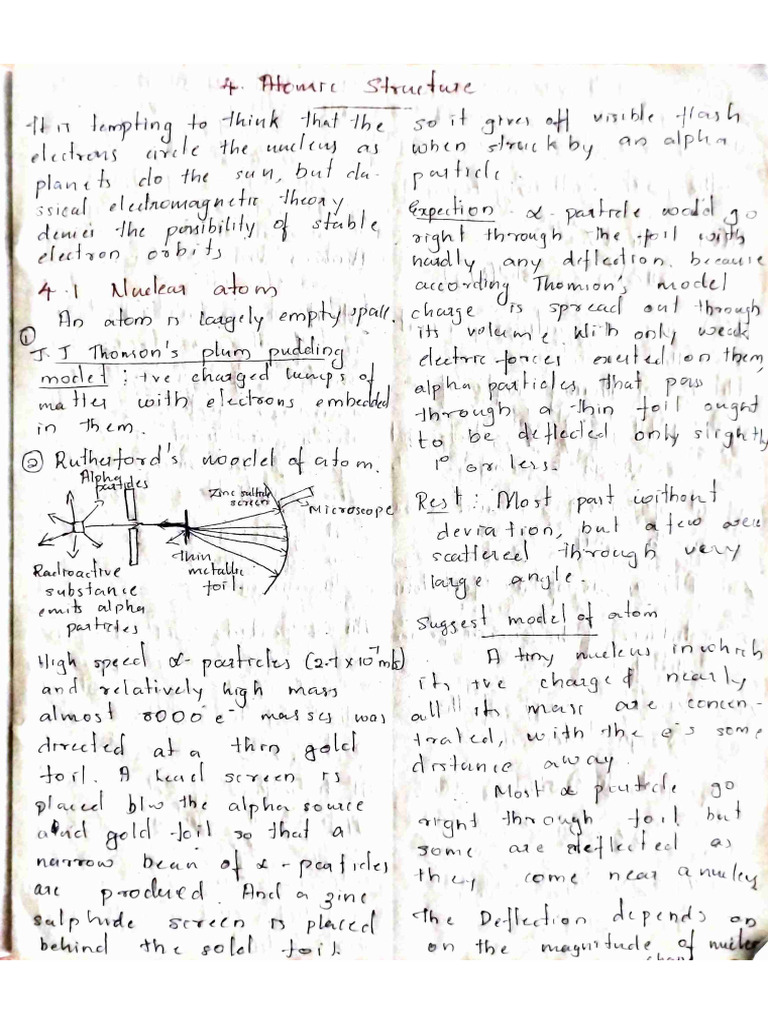 4. Atomic Structure
It is tempting to think that the
electrons circle the nucleus as
planets do the sun, but cla-
ssical electromagnetic theory
denies the possibility of stable
electron orbits
4.1 Nuclear atom
An atom is largely empty spall.
① J.J Thomson's plum pudding
model : +ve charged lumps of
matter with electrons embedded
in them.
② Rutherford's moodel of atom.
Alpha
particles
Zinc sulfide
screen
Microscope
Thin
metallic
foil.
Radioactive
substance
emits alpha
particles
High speed α-particles (2.7×10⁷m/s)
and relatively high mass
almost 8000 e⁻ masses was
directed at a thin gold
foil. A lead screen is
placed b/w the alpha source
and gold foil so that a
narrow beam of α-particles
are produed. And a zinc
sulphide screen is placed
behind the gold foil.
so it gives off visible flash
when struck by an alpha
particle.
Expection α-particle would go
right through the foil with
hardly any deflection because
according Thomson's model
charge is spread out through
its volume. With only weak
electric forces exerted on them,
alpha particles that pass
through a thin foil ought
to be deflected only slightly
1° or less.
Rest : Most part without
deviation, but a few were
scattered through very
large angle.
Suggest model of atom
A tiny nucleus in which
its +ve charge & nearly
all its mass are concen-
trated, with the e⁻s some
distance away.
Most α particle go
right through foil but
some are deflected as
they come near a nucley
The Deflection depends on
on the magnitude of nuclei